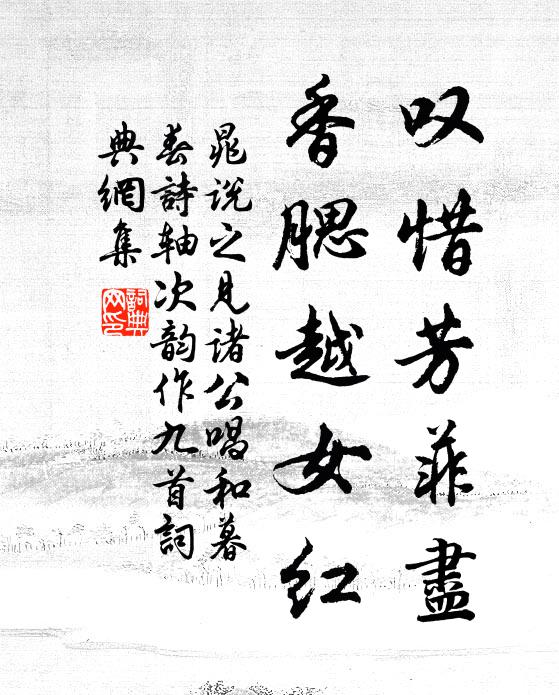 叹惜芳菲盡
香腮越女红
晁说之见诸公唱和暮
春詩轴次韵作九首詞
典網集
詞典网印